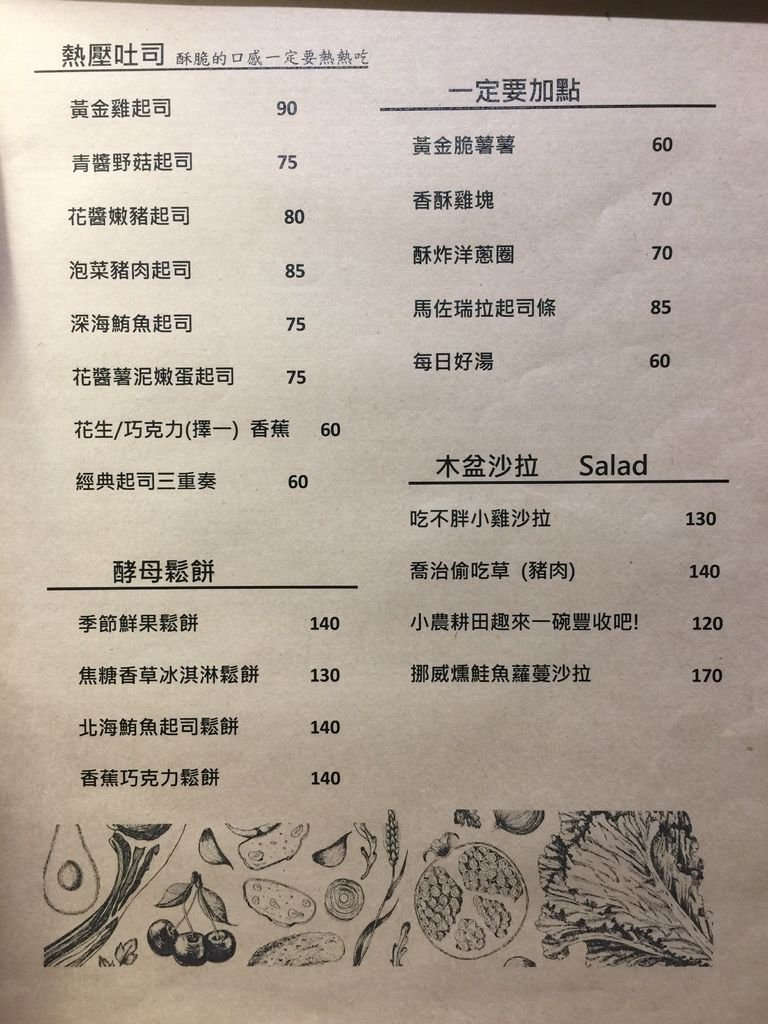 熱壓吐司 酥脆的口感一定要熱熱吃
黃金雞起司 90
青醬野菇起司 75
花醬嫩豬起司 80
泡菜豬肉起司 85
深海鮪魚起司 75
花醬薯泥嫩蛋起司 75
花生/巧克力(擇一) 香蕉 60
經典起司三重奏 60
酵母鬆餅
季節鮮果鬆餅 140
焦糖香草冰淇淋鬆餅 130
北海鮪魚起司鬆餅 140
香蕉巧克力鬆餅 140
一定要加點
黃金脆薯薯 60
香酥雞塊 70
酥炸洋蔥圈 70
馬佐瑞拉起司條 85
每日好湯 60
木盆沙拉 Salad
吃不胖小雞沙拉 130
喬治偷吃草 (豬肉) 140
小農耕田趣來一碗豐收吧! 120
挪威燻鮭魚蘿蔓沙拉 170